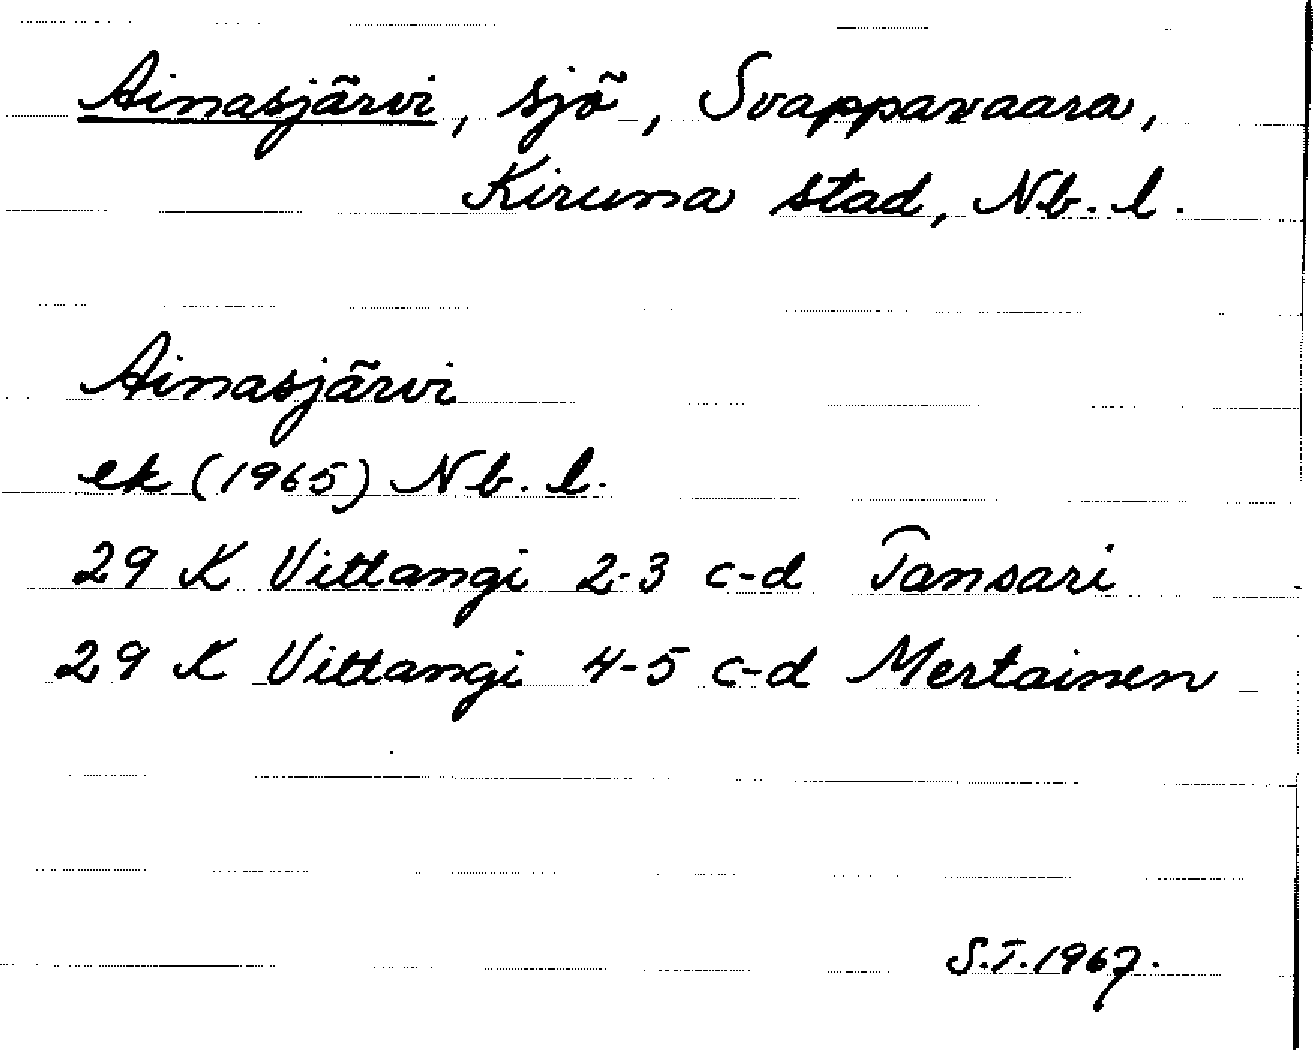 Ainasjärvi, sjö, Svappavaara,
Kiruna stad, Nb. l.
Ainasjärvi
ek (1965) Nb. l.
29 K Vittangi 2-3 c-d Tansari
29 K Vittangi 4-5 c-d Mertainen
S.T. 1967.